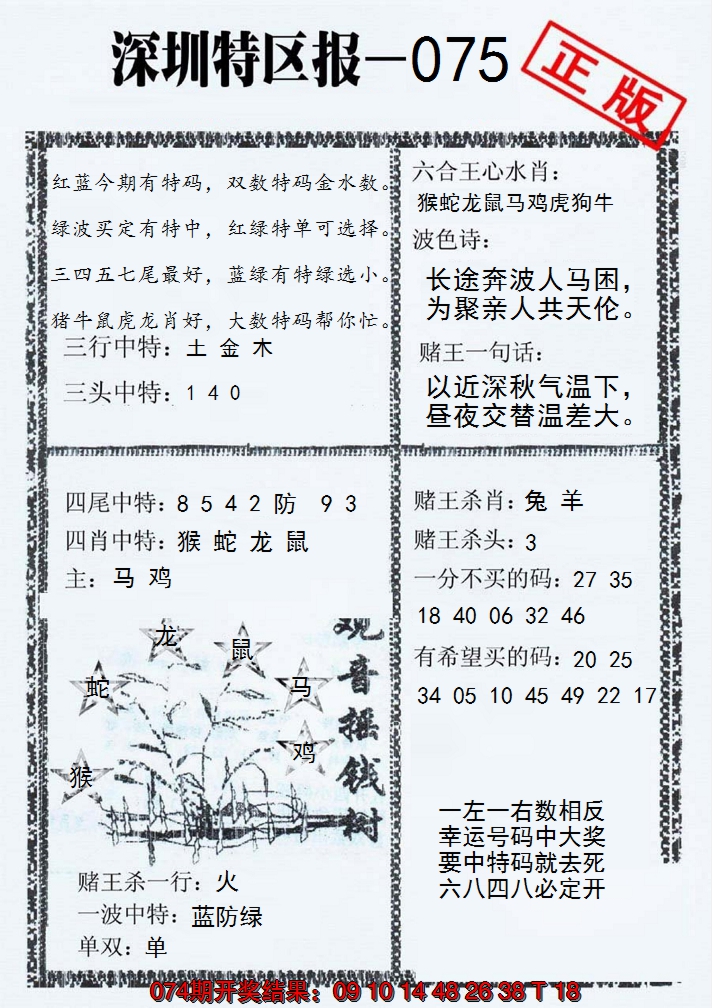 深圳特区报—075
正版
红蓝今期有特码，双数特码金水数。
绿波买定有特中，红绿特单可选择。
三四五七尾最好，蓝绿有特绿选小。
猪牛鼠虎龙肖好，大数特码帮你忙。
三行中特：土 金 木
三头中特：1 4 0
六合王心水肖：
猴蛇龙鼠马鸡虎狗牛
波色诗：
长途奔波人马困，
为聚亲人共天伦。
赌王一句话：
以近深秋气温下，
昼夜交替温差大。
四尾中特：8 5 4 2 防 9 3
四肖中特：猴 蛇 龙 鼠
主：马 鸡
龙
鼠
蛇
马
鸡
猴
观音摇钱树
赌王杀一行：火
一波中特：蓝防绿
单双：单
赌王杀肖：兔 羊
赌王杀头：3
一分不买的码：27 35
18 40 06 32 46
有希望买的码：20 25
34 05 10 45 49 22 17
一左一右数相反
幸运号码中大奖
要中特码就去死
六八四八必定开
074期开奖结果：09 10 14 48 26 38 T 18